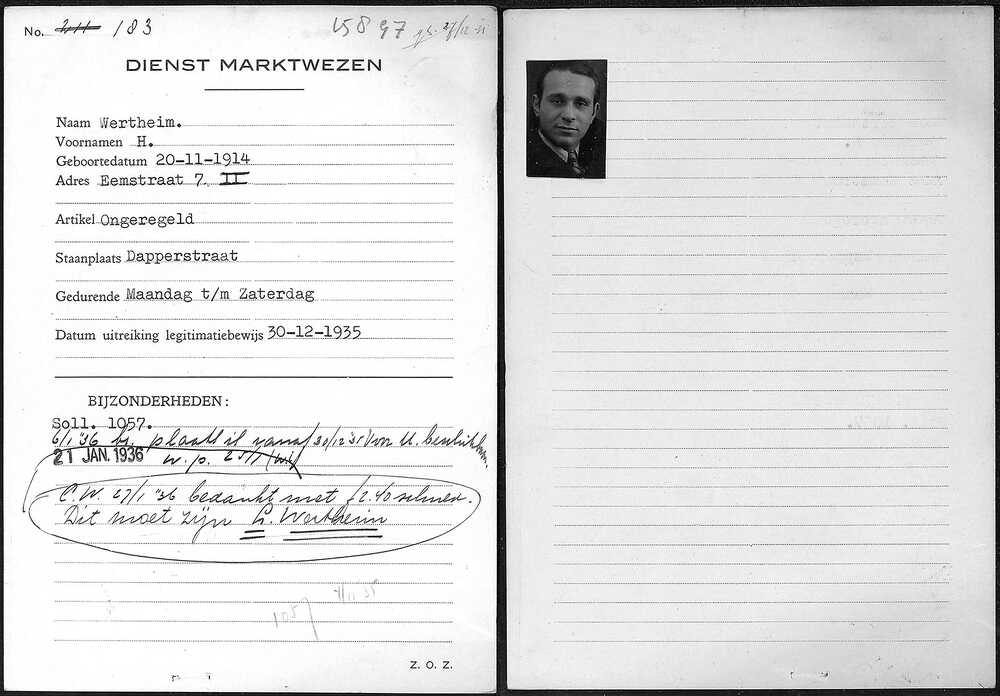 No. 211 183 15897 27/12 31
DIENST MARKTWEZEN
Naam Wertheim.
Voornamen H.
Geboortedatum 20-11-1914
Adres Eemstraat 7 II
Artikel Ongeregeld
Staanplaats Dapperstraat
Gedurende Maandag t/m Zaterdag
Datum uitreiking legitimatiebewijs 30-12-1935
BIJZONDERHEDEN:
Soll. 1057.
6/1 '36 br. plaats is vanaf 30/12 '35 voor U. beschikbaar.
21 JAN. 1936 w.p. 25/1
C.W. 27/1 '36 bedankt met f 2.40 schuld.
Dit moet zijn G. Wertheim
1057 4/11 35
Z. O. Z.